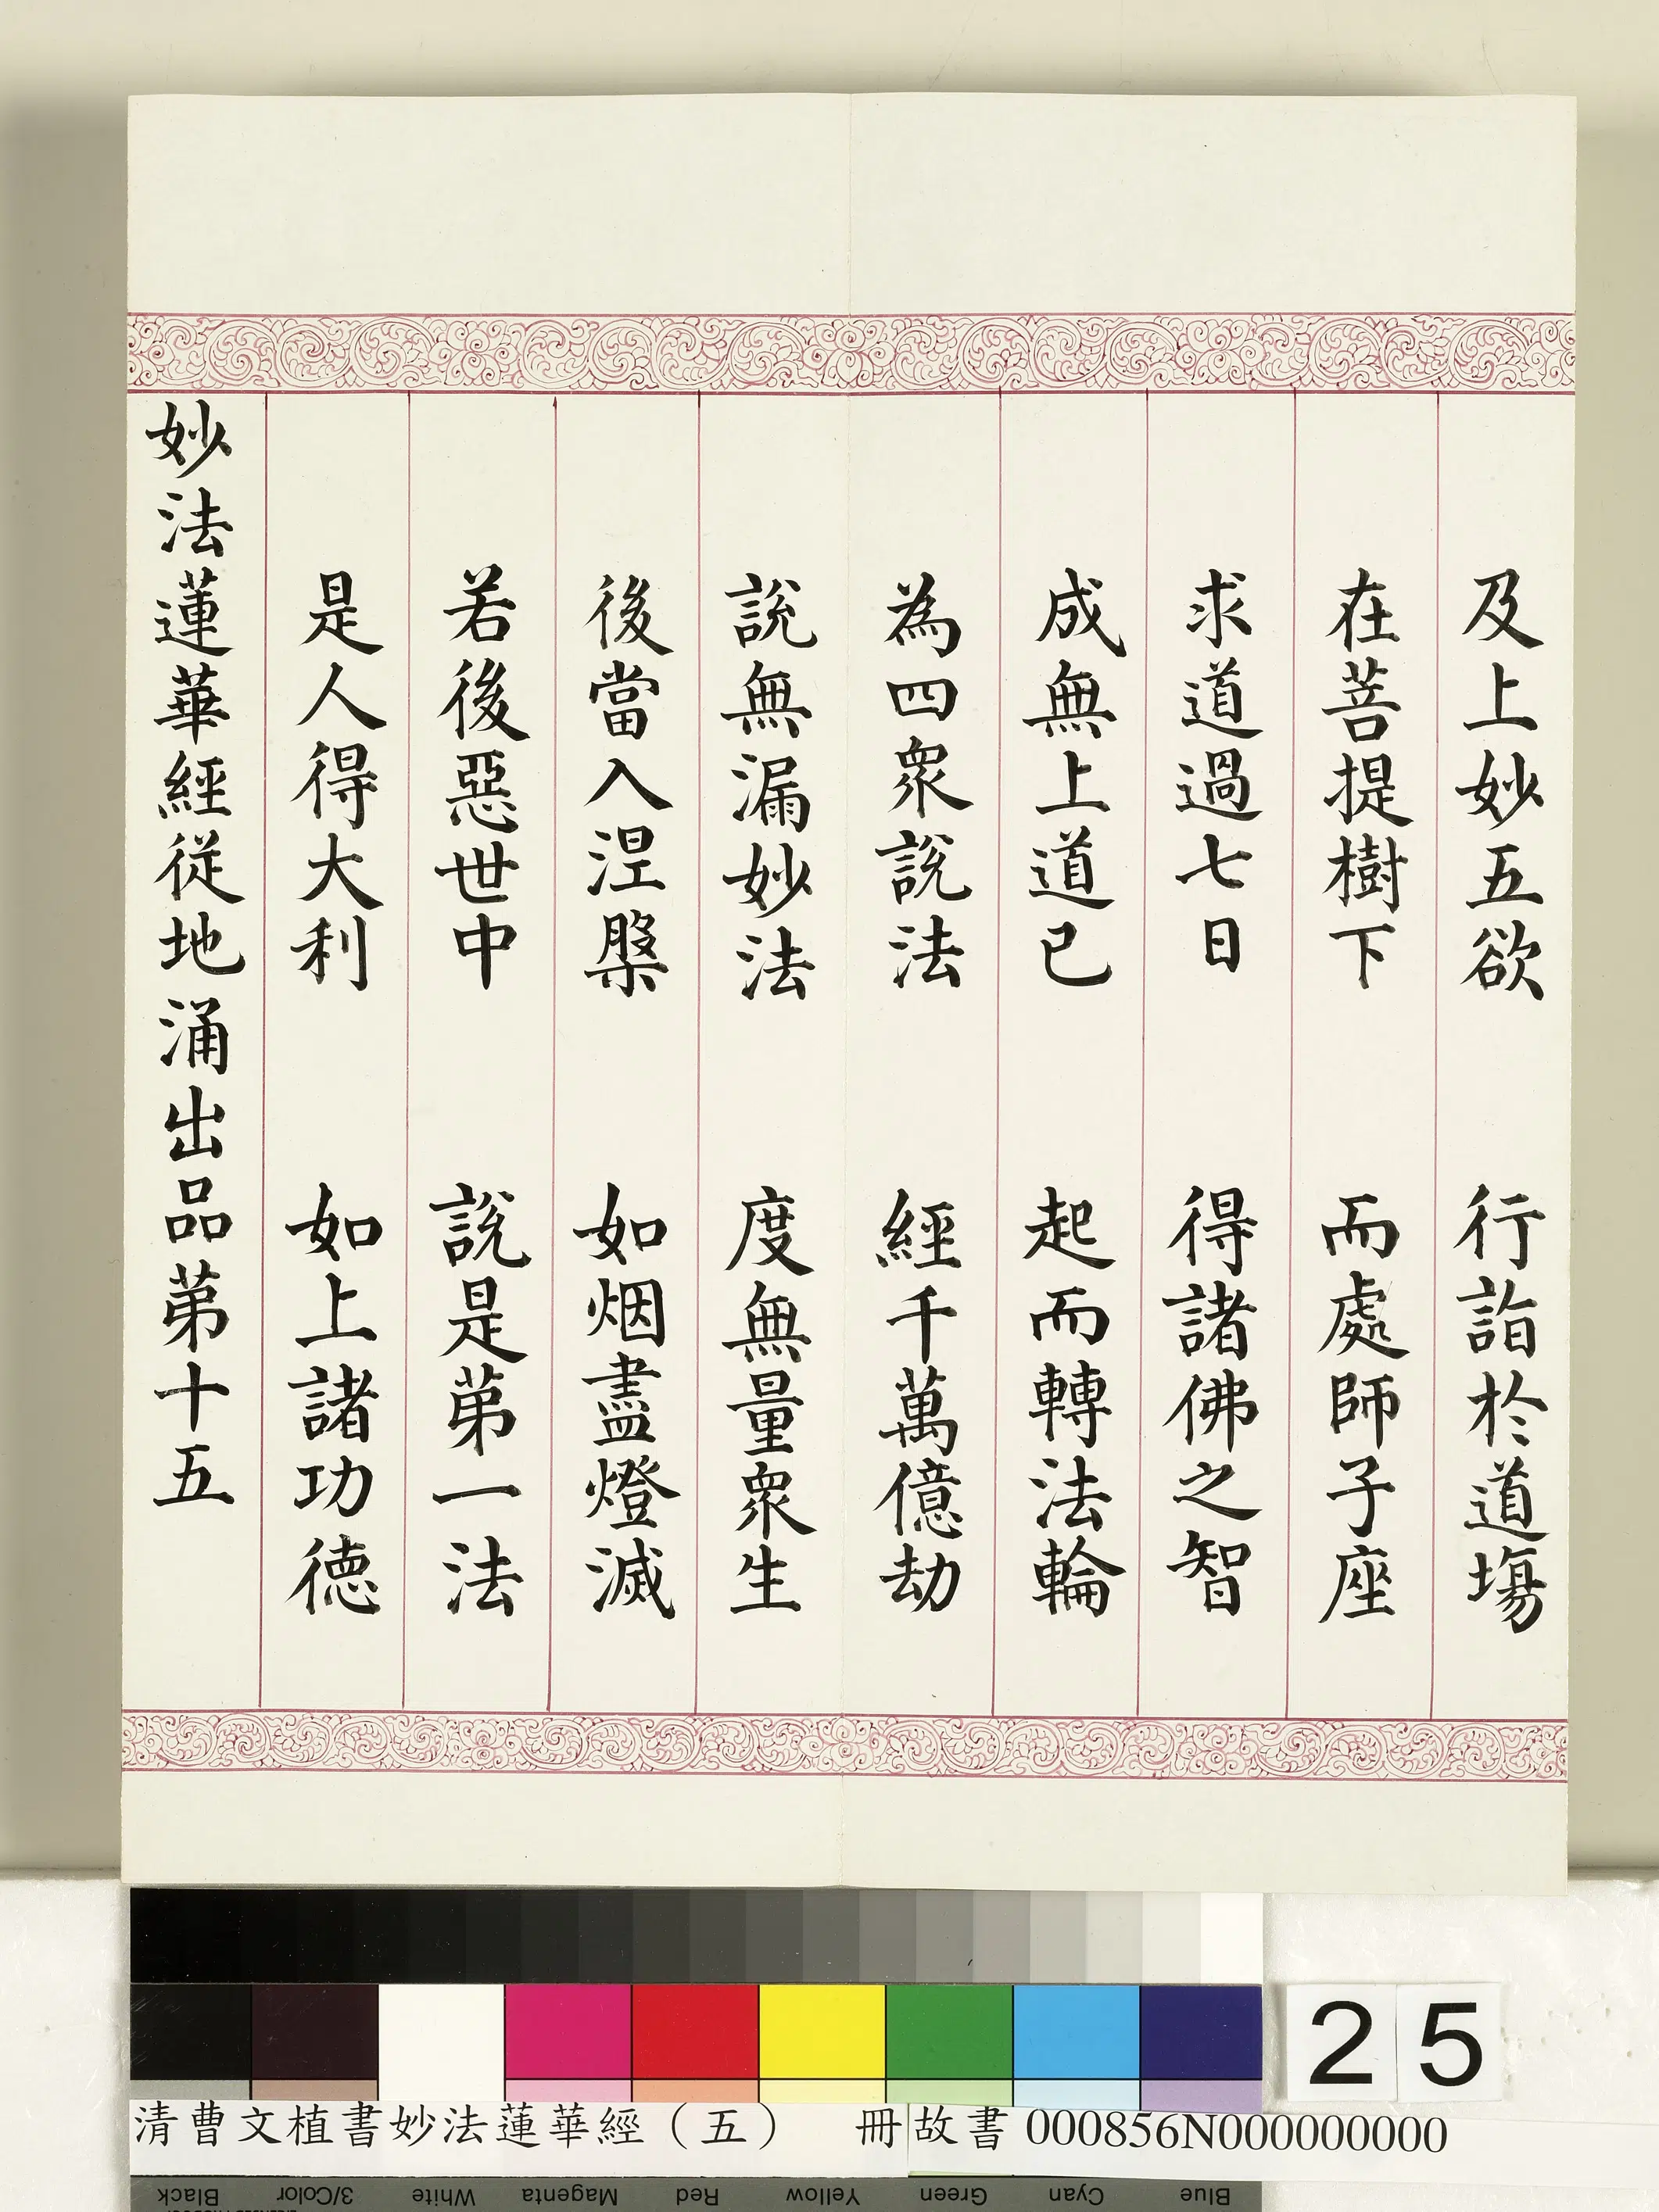 及上妙五欲　行詣於道塲
在菩提樹下　而處師子座
求道過七日　得諸佛之智
成無上道已　起而轉法輪
為四衆說法　經千萬億劫
說無漏妙法　度無量衆生
後當入涅槃　如烟盡燈滅
若後惡世中　說是第一法
是人得大利　如上諸功德
妙法蓮華經從地涌出品第十五
25
清曹文植書妙法蓮華經（五）　冊故書000856N000000000
Black 3/Color White Magenta Red Yellow Green Cyan Blue